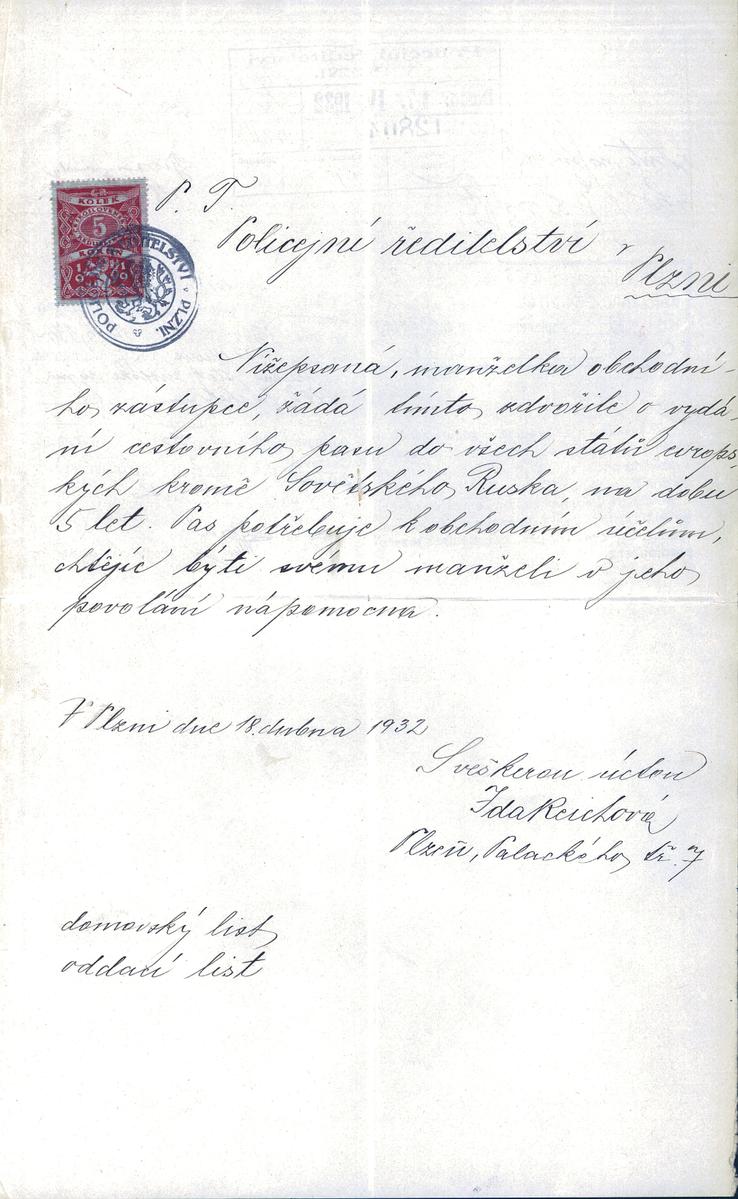 P. T.
Policejní ředitelství v
Plzni
KOLEK
5
POLI ITELSTVÍ PLZNI.
Nížepsaná, manželka obchodní-
ho zástupce, žádá tímto zdvořile o vydá-
ní cestovního pasu do všech států evrops-
kých kromě Sovětského Ruska, na dobu
5 let. Pas potřebuje k obchodním účelům,
chtějíc býti svému manželi v jeho
povolání nápomocna.
V Plzni dne 18. dubna 1932
S veškerou úctou
Ida Reichová
Plzeň, Palackého tř. 7
domovský list
oddací list